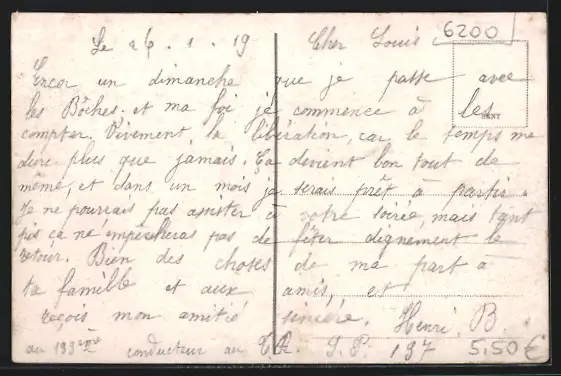 6200
Le 26.1.19 Cher Louis
Encor un dimanche que je passe avec
les Bôches. et ma foi je commence à les
compter. Vivement la libération, car le temps me
dure plus que jamais. Ça devient bon tout de
même, et dans un mois je serais prêt à partir.
Je ne pourrais pas assister à votre soirée, mais tant
pis ça ne empêcheras pas de fêter dignement le
retour. Bien des choses de ma part à
ta famille et aux amis, et
reçois mon amitié sincère. Henri B.
au 133ème conducteur au S.P. 197 5,50 €